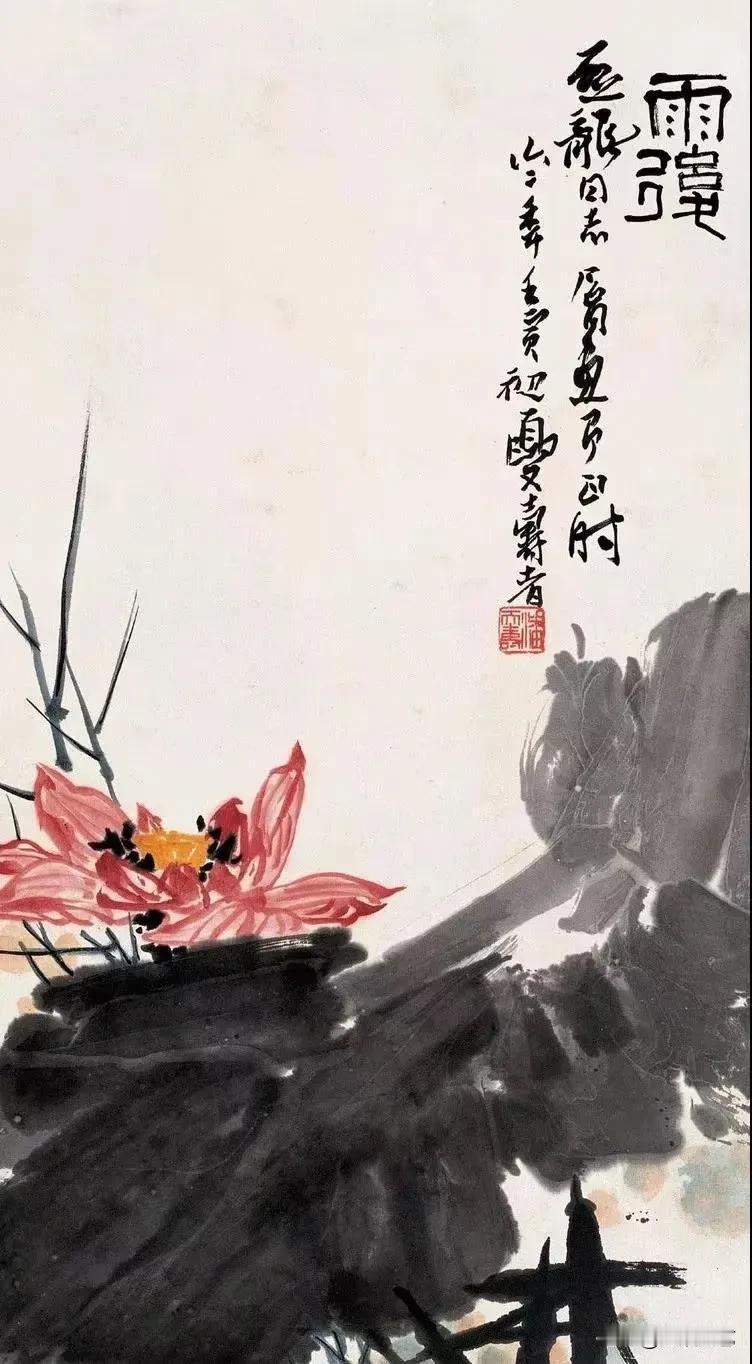 雨
龍同志屬畫即正肘
六二年壬寅初夏壽者
潘天壽